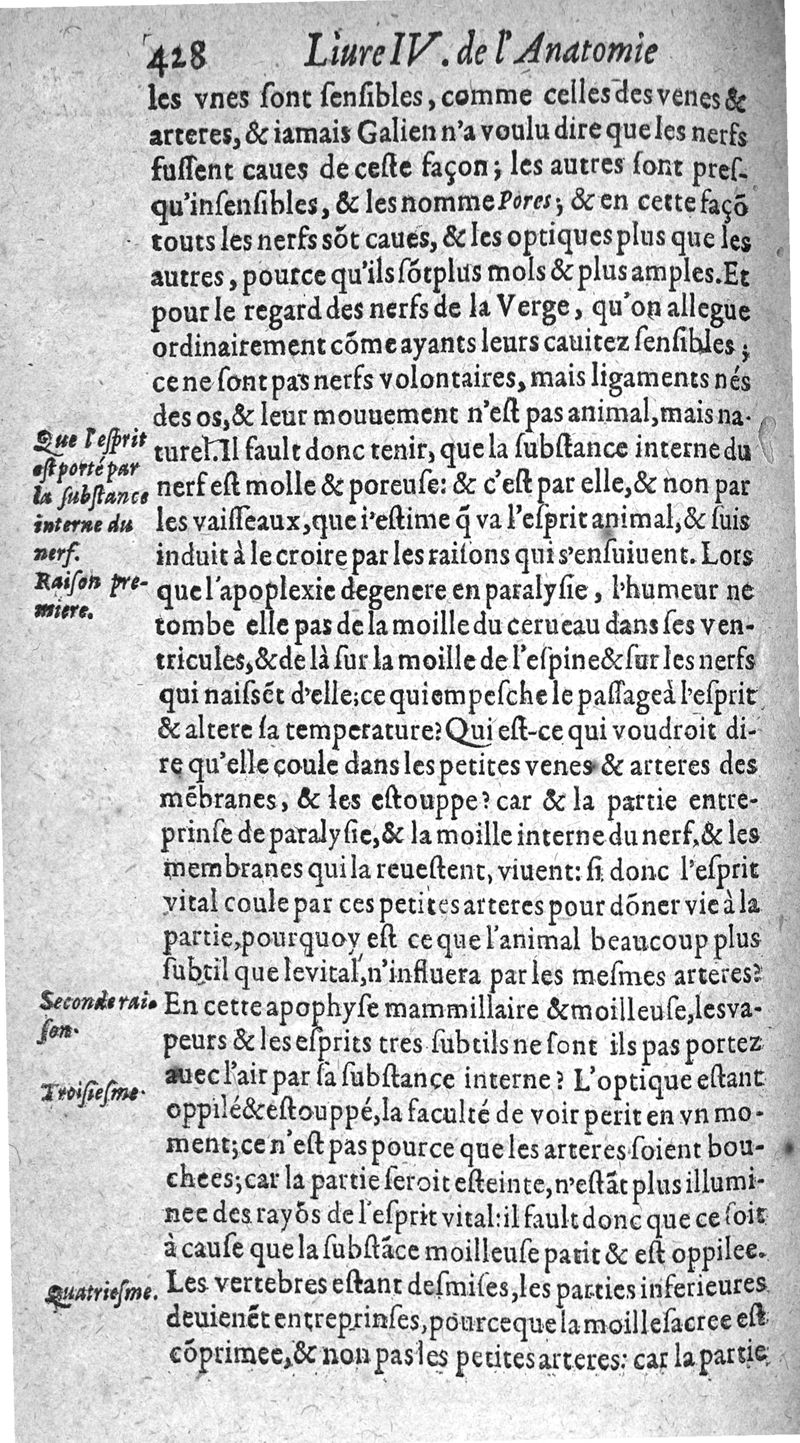 428 Liure IV. de l'Anatomie
les vnes ſont ſenſibles, comme celles des venes &
arteres, & iamais Galien n'a voulu dire que les nerfs
fuſſent caues de ceſte façon; les autres ſont preſ-
qu'inſenſibles, & les nomme Pores; & en cette façõ
touts les nerfs sõt caues, & les optiques plus que les
autres, pource qu'ils ſõt plus mols & plus amples. Et
pour le regard des nerfs de la Verge, qu'on allegue
ordinairement cõme ayants leurs cauitez ſenſibles;
ce ne ſont pas nerfs volontaires, mais ligaments nés
des os, & leur mouuement n'eſt pas animal, mais na-
Que l'eſprit
eſt porté par
la ſubſtance
interne du
nerf.
turel. Il fault donc tenir, que la ſubſtance interne du
nerf eſt molle & poreuſe: & c'eſt par elle, & non par
les vaiſſeaux, que i'eſtime q̃ va l'eſprit animal, & ſuis
induit à le croire par les raiſons qui s'enſuiuent. Lors
Raiſon pre-
miere.
que l'apoplexie degenere en paralyſie, l'humeur ne
tombe elle pas de la moille du cerueau dans ſes ven-
tricules, & de là ſur la moille de l'eſpine & ſur les nerfs
qui naiſſẽt d'elle; ce qui empeſche le paſſage à l'eſprit
& altere ſa temperature? Qui eſt-ce qui voudroit di-
re qu'elle coule dans les petites venes & arteres des
mẽbranes, & les eſtouppe? car & la partie entre-
prinſe de paralyſie, & la moille interne du nerf, & les
membranes qui la reueſtent, viuent: ſi donc l'eſprit
vital coule par ces petites arteres pour dõner vie à la
partie, pourquoy eſt ce que l'animal beaucoup plus
ſubtil que le vital, n'influera par les meſmes arteres?
Seconde rai-
ſon.
En cette apophyſe mammillaire & moilleuſe, les va-
peurs & les eſprits tres ſubtils ne ſont ils pas portez
auec l'air par ſa ſubſtance interne? L'optique eſtant
Troiſieſme.
oppilé & eſtouppé, la faculté de voir perit en vn mo-
ment; ce n'eſt pas pource que les arteres ſoient bou-
chees; car la partie ſeroit eſteinte, n'eſtãt plus illumi-
nee des rayõs de l'eſprit vital: il fault donc que ce ſoit
à cauſe que la ſubſtãce moilleuſe patit & eſt oppilee.
Quatrieſme.
Les vertebres eſtant deſmiſes, les parties inferieures
deuienẽt entreprinſes, pource que la moille ſacree eſt
cõprimee, & non pas les petites arteres: car la partie